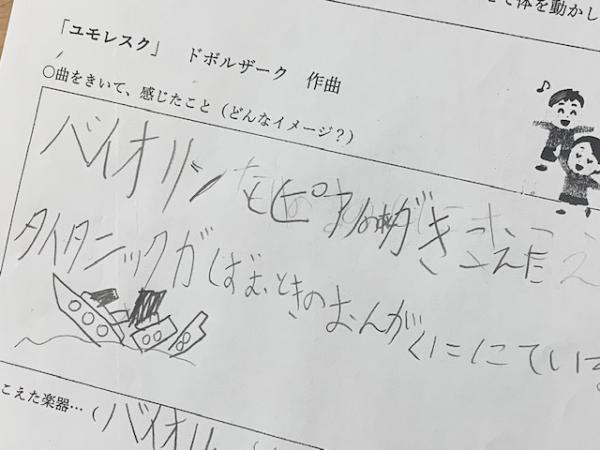 て体を動かし
「ユモレスク」 ドボルザーク 作曲
○曲をきいて、感じたこと（どんなイメージ？）
バイオリンとピアノのがきこえた
タイタニックがしずむときのおんがくににている
こえた楽器…（バイオリ